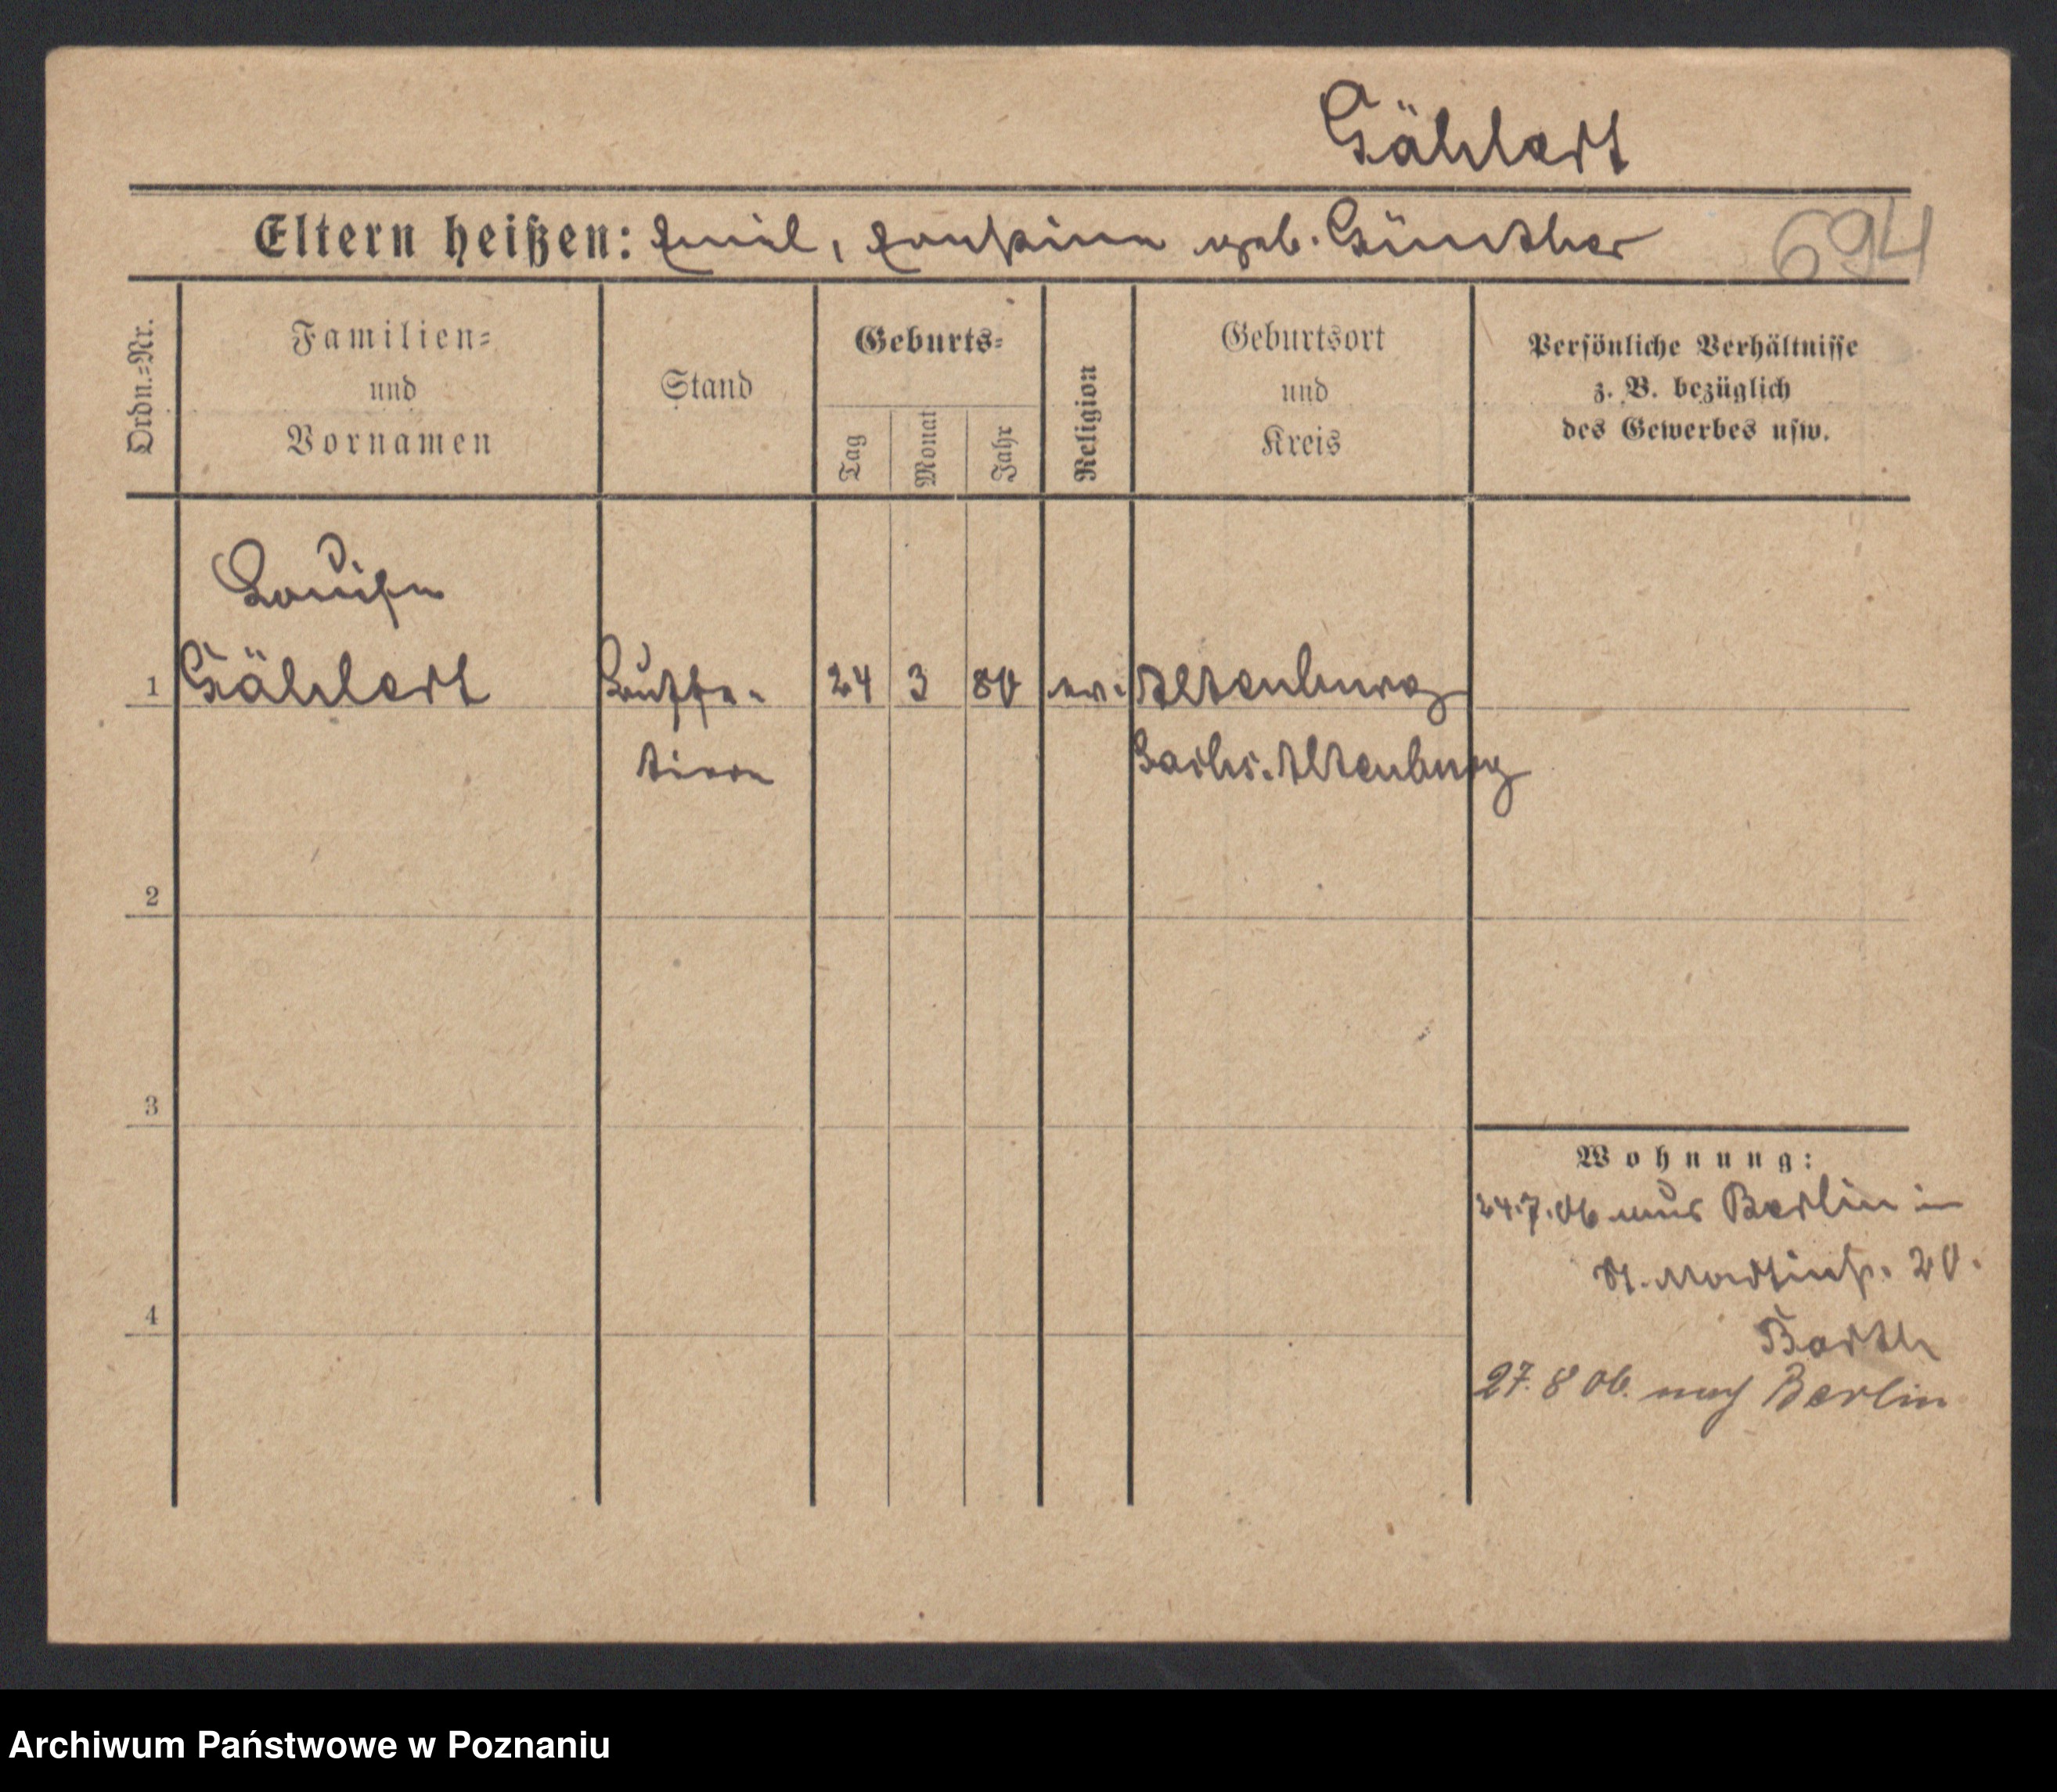 Gählert
Eltern heißen: Emil, Ernestine geb. Günther
694
Ordn.-Nr.
Familien-
und
Vornamen
Stand
Geburts-
Tag
Monat
Jahr
Religion
Geburtsort
und
Kreis
Persönliche Verhältnisse
z. B. bezüglich
des Gewerbes usw.
Louise
1 Gählert 24 3 80 ev. Altenburg
Sachs. Altenburg
2
3
4
Wohnung:
24.7.06 aus Berlin in
St. Martinstr. 20.
Barth
27. 8 06. nach Berlin
Archiwum Państwowe w Poznaniu